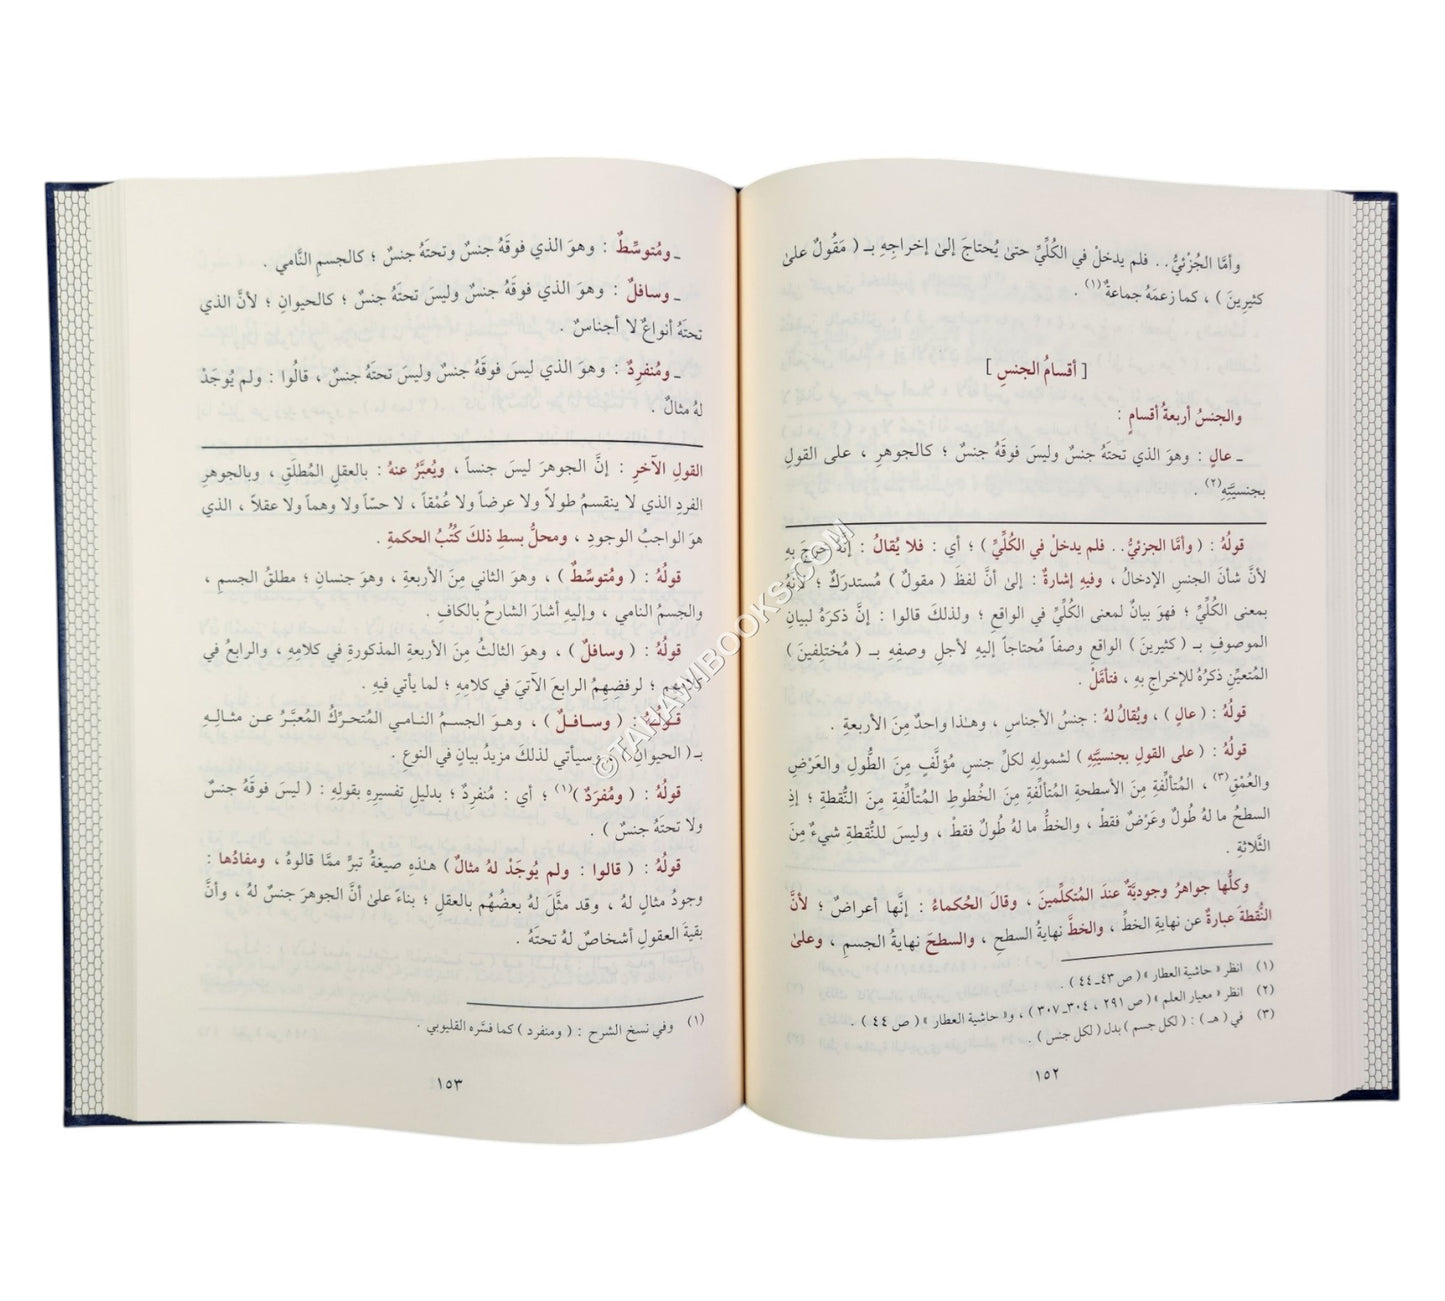 وأمَّا الجُزْئيُّ.. فلم يدخلْ في الكُلِّيِّ حتىٰ يُحتاجَ إلىٰ إخراجِهِ بـ ( مَقُولٌ علىٰ
كثيرِينَ ) ، كما زعمَهُ جماعةٌ (١) .
[ أقسامُ الجنسِ ]
والجنسُ أربعةُ أقسامٍ :
ـ عالٍ : وهوَ الذي تحتَهُ جنسٌ وليسَ فوقَهُ جنسٌ ؛ كالجوهرِ ، على القولِ
بجنسيَّتِهِ (٢) .
قولُهُ : ( وأمَّا الجزئيُّ.. فلم يدخلْ في الكُلِّيِّ ) ؛ أي : فلا يُقالُ : إنَّهُ خرجَ بهِ
لأنَّ شأنَ الجنسِ الإدخالُ ، وفيهِ إشارةٌ : إلىٰ أنَّ لفظَ ( مقولٌ ) مُستدرَكٌ ؛ لأنَّهُ
بمعنى الكُلِّيِّ ؛ فهوَ بيانٌ لمعنى الكُلِّيِّ في الواقعِ ؛ ولذلكَ قالوا : إنَّ ذكرَهُ لبيانِ
الموصوفِ بـ ( كثيرينَ ) الواقعِ وصفاً مُحتاجاً إليهِ لأجلِ وصفِهِ بـ ( مُختلِفينَ )
المُتعيِّنِ ذكرُهُ للإخراجِ بهِ ، فتأمَّلْ .
قولُهُ : ( عالٍ ) ، ويُقالُ لهُ : جنسُ الأجناسِ ، وهـٰذا واحدٌ مِنَ الأربعةِ .
قولُهُ : ( على القولِ بجنسيَّتِهِ ) لشمولِهِ لكلِّ جنسٍ مُؤلَّفٍ مِنَ الطُّولِ والعَرْضِ
والعُمْقِ (٣) ، المُتألِّفةِ مِنَ الأسطحةِ المُتألِّفةِ مِنَ الخُطوطِ المُتألِّفةِ مِنَ النُّقطةِ ؛ إذِ
السطحُ ما لهُ طُولٌ وعَرْضٌ فقطْ ، والخطُّ ما لهُ طُولٌ فقطْ ، وليسَ للنُّقطةِ شيءٌ مِنَ
الثَّلاثةِ .
وكلُّها جواهرُ وجوديَّةٌ عندَ المُتكلِّمينَ ، وقالَ الحُكماءُ : إنَّها أعراضٌ ؛ لأنَّ
النُّقطةَ عبارةٌ عن نهايةِ الخطِّ ، والخطَّ نهايةُ السطحِ ، والسطحَ نهايةُ الجسمِ ، وعلىٰ
(١) انظر « حاشية العطار » ( ص ٤٣ـ٤٤ ) .
(٢) انظر « معيار العلم » ( ص ٢٩١ ، ٣٠٤ـ٣٠٧ ) ، و« حاشية العطار » ( ص ٤٤ ) .
(٣) في ( هـ ) : ( لكل جسم ) بدل ( لكل جنس ) .
١٥٢
ـ ومُتوسِّطٌ : وهوَ الذي فوقَهُ جنسٌ وتحتَهُ جنسٌ ؛ كالجسمِ النَّامي .
ـ وسافلٌ : وهوَ الذي فوقَهُ جنسٌ وليسَ تحتَهُ جنسٌ ؛ كالحيوانِ ؛ لأنَّ الذي
تحتَهُ أنواعٌ لا أجناسٌ .
ـ ومُنفرِدٌ : وهوَ الذي ليسَ فوقَهُ جنسٌ وليسَ تحتَهُ جنسٌ ، قالُوا : ولم يُوجَدْ
لهُ مثالٌ .
القولِ الآخرِ : إنَّ الجوهرَ ليسَ جنساً ، ويُعبَّرُ عنهُ : بالعقلِ المُطلَقِ ، وبالجوهرِ
الفردِ الذي لا ينقسمُ طولاً ولا عرضاً ولا عُمْقاً ، لا حسّاً ولا وهماً ولا عقلاً ، الذي
هوَ الواجبُ الوجودِ ، ومحلُّ بسطِ ذلكَ كُتُبُ الحكمةِ .
قولُهُ : ( ومُتوسِّطٌ ) ، وهوَ الثاني مِنَ الأربعةِ ، وهوَ جنسانِ ؛ مطلقُ الجسمِ ،
والجسمُ النامي ، وإليهِ أشارَ الشارحُ بالكافِ .
قولُهُ : ( وسافلٌ ) ، وهوَ الثالثُ مِنَ الأربعةِ المذكورةِ في كلامِهِ ، والرابعُ في
؛ لرفضِهِمُ الرابعَ الآتيَ في كلامِهِ ؛ لما يأتي فيهِ .
قولُهُ : ( وسافلٌ ) ، وهوَ الجسمُ النامي المُتحرِّكُ المُعبَّرُ عن مثالِهِ
بـ ( الحيوانِ ) ، وسيأتي لذلكَ مزيدُ بيانٍ في النوعِ .
قولُهُ : ( ومُفرَدٌ ) (١) ؛ أي : مُنفرِدٌ ؛ بدليلِ تفسيرِهِ بقولِهِ : ( ليسَ فوقَهُ جنسٌ
ولا تحتَهُ جنسٌ ) .
قولُهُ : ( قالوا : ولم يُوجَدْ لهُ مثالٌ ) هـٰذهِ صيغةُ تبرٍّ ممَّا قالوهُ ، ومفادُها :
وجودُ مثالٍ لهُ ، وقد مثَّلَ لهُ بعضُهُم بالعقلِ ؛ بناءً علىٰ أنَّ الجوهرَ جنسٌ لهُ ، وأنَّ
بقيةَ العقولِ أشخاصٌ لهُ تحتَهُ .
(١) وفي نسخ الشرح : ( ومنفرد ) كما فسَّره القليوبي .
١٥٣
©TAHAMIBOOKS.COM